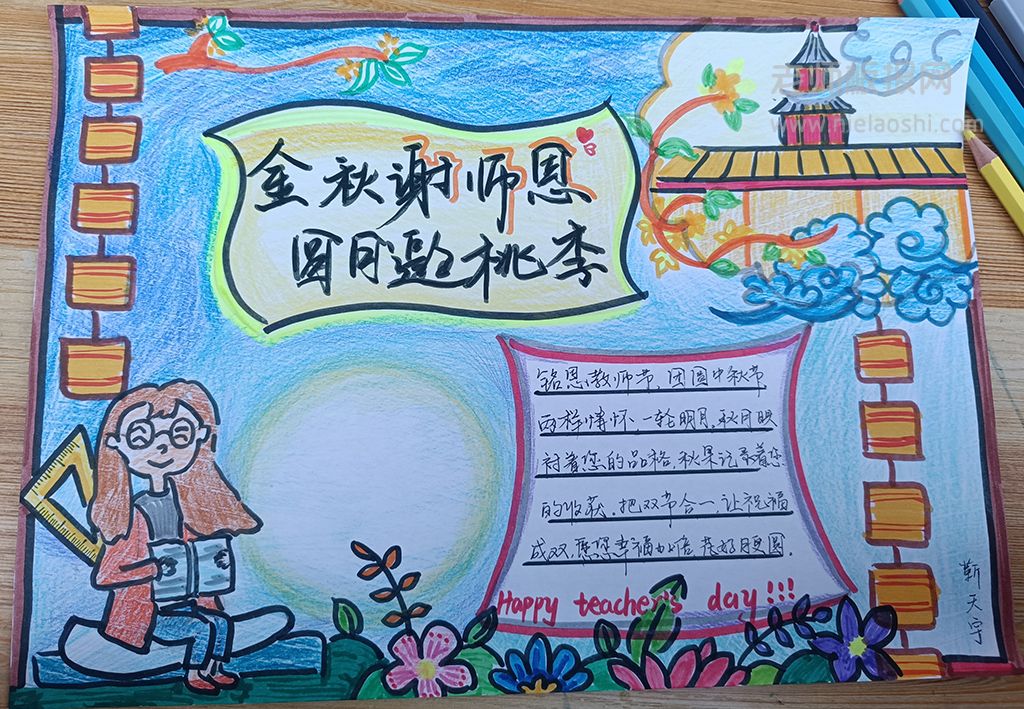 老师板报网
www.melaoshi.com
金秋谢师恩
圆月邀桃李
铭恩教师节,团圆中秋节
两样情怀,一轮明月,秋月映
衬着您的品格,秋果记录着您
的收获,把双节合一,让祝福
成双,愿您幸福加倍,花好月更圆.
Happy teacher's day!!!
靳天宇